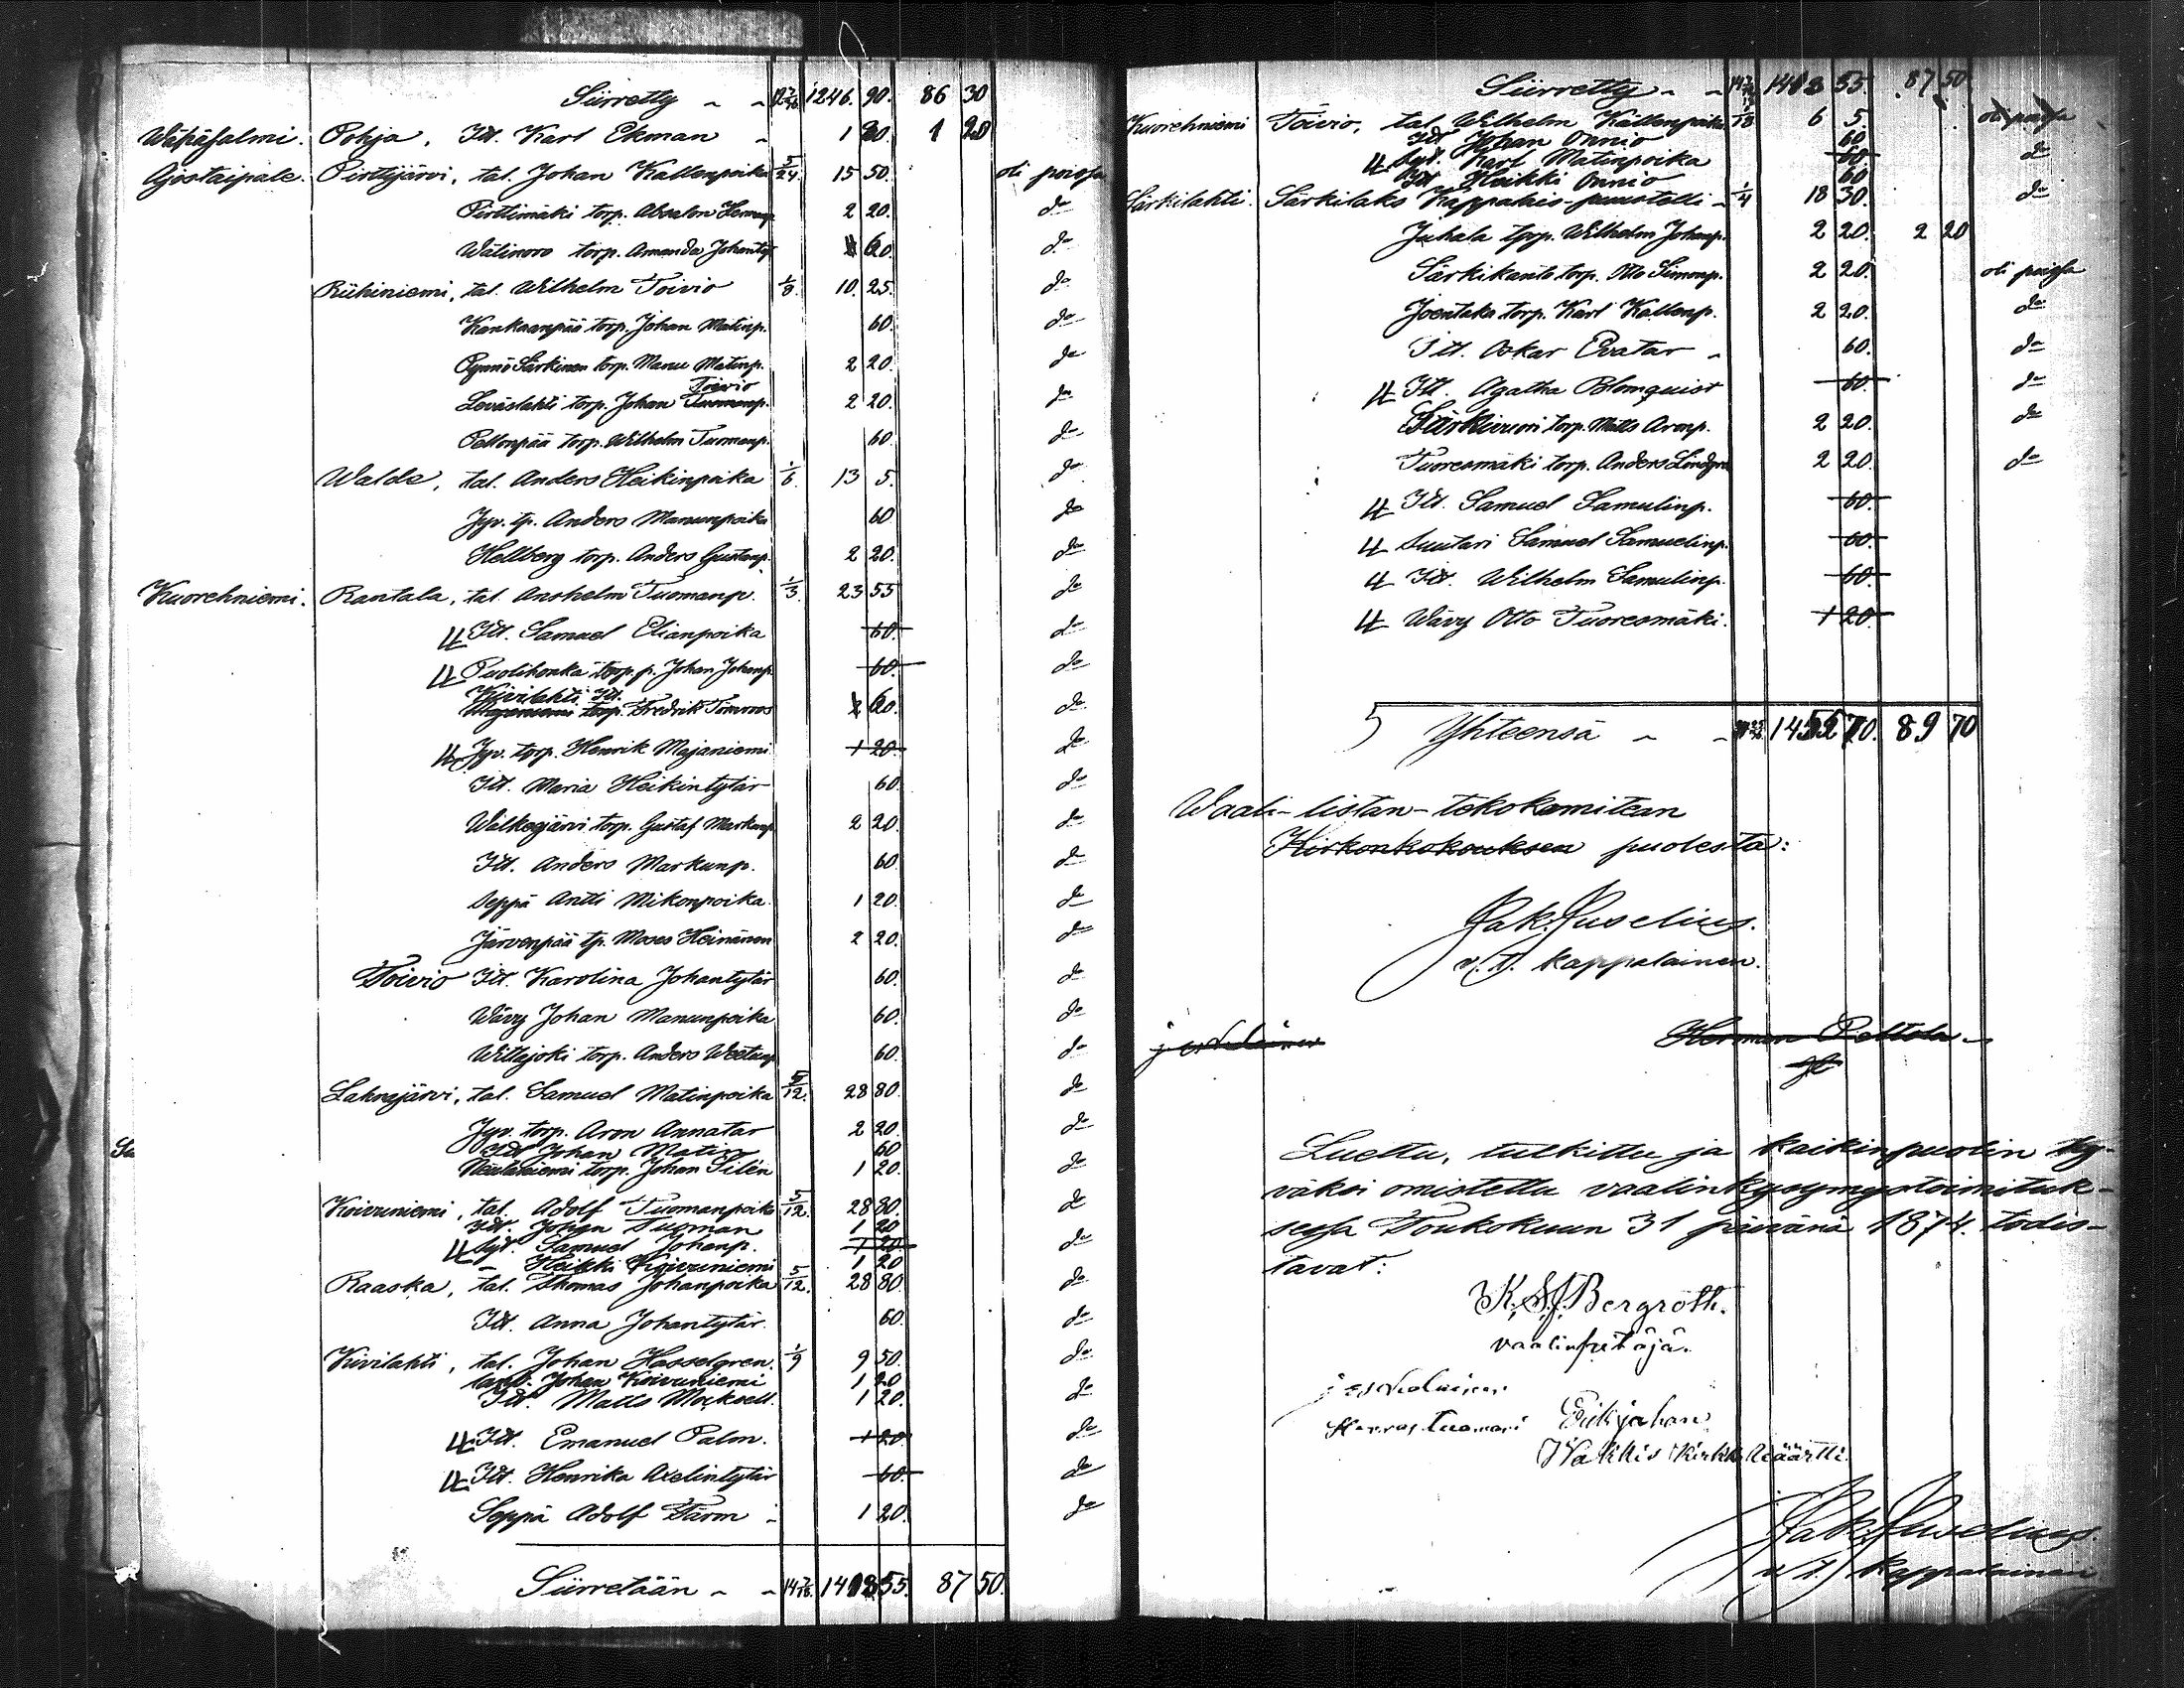 Siirretty - - 1246. 90. 86 30
Wähäsalmi. Pohja, Itt. Karl Ekman - 1 20. 1 20
Ajostaipale. Pirttijärvi, tal. Johan Kallenpoika 5/24. 15 50. oli poiossa
Pirttimäki torp. Absalon 2 20. do
Wälinoro torp. Amanda Johantyt. 60. do
Riihiniemi, tal. Wilhelm Toivio 1/8. 10. 25. do
Kankaanpää torp. Johan Matinp. 60. do
Särkinen torp. Manu Matinp. 2 20. do
Toivio
Leväslahti torp. Johan Tuomanp. 2 20. do
Peltonpää torp. Wilhelm Tuomanp. 60. do
Walde, tal. Anders Heikinpoika 1/6. 13 5. do
Jyv. tp. Anders Manunpoika 60 do
Hellberg torp. Anders Gustanp. 2 20. do
Kuorehniemi. Rantala, tal. Anshelm Tuomanp. 1/3. 23 55 do
Itt. Samuel Elianpoika 60. do
Puolihonka torp. p. Johan Johanp. 60. do
Kivilahti Itt.
torp. Fredrik Tomroos 60. do
Jyv. torp. Henrik Majaniemi 1 20. do
Itt. Maria Heikintytär 60. do
Walkeajärvi torp. Gustaf Markunp. 2 20. do
Itt. Anders Markunp. 60. do
Seppä Antti Mikonpoika. 1 20. do
Järvenpää tp. Moses Heinänen 2 20. do
Toivio Itt. Karolina Johantytär 60. do
Wävy Johan Manunpoika 60. do
Wittajoki torp. Anders 60. do
Lahnajärvi, tal. Samuel Matinpoika 5/12. 28 80. do
Jyv. torp. Aron Annatar 2 20. do
Itt Johan 60
torp. Johan Silén 1 20. do
Koivuniemi, tal. Adolf Tuomanpoika 5/12. 28 80. do
Itt. Johan Tuoman 1 20
Samuel Johanp. 1 20. do
Heikki Koivuniemi 1 20
Raaska, tal. Thomas Johanpoika 5/12. 28 80. do
Itt. Anna Johantytär. 60. do
Kivilahti, tal. Johan Hasselgren. 1/9 9 50. do
Johan Koivuniemi 1 20
Itt. Matts 1 20. do
Itt. Emanuel Palm. 1 20. do
Itt. Henrika Axelintytär 60. do
Seppä Adolf Färm - 1 20. do
Siirretään - - 14 7/18. 1403 55. 87 50.
Siirretty - - 1403 55. 87 50
Kuorehniemi Toivio, tal. Wilhelm Kallenpoika 1/18 6 5. oli poiossa
Itt Johan Onnio 60.
Karl Matinpoika 60. do
Itt Heikki Onnio 60
Särkilahti. Särkilaks Kappalais-puustelli - 1/4 18 30. do
Juhala torp. Wilhelm Johanp. 2 20. 2 20
Särkikanto torp. Otto Simonp. 2 20. oli poiossa
Joentaka torp. Karl Kallenp. 2 20. do
Itt. Oskar Evatar - 60. do
Itt. Agatha Blomquist 60. do
Särkivuori torp. Matts Aronp. 2 20. do
Tuoresmäki torp. Anders Lindgre 2 20. do
Itt. Samuel Samulinp. 60.
Suutari Samuel Samuelinp. 60.
Itt. Wilhelm Samulinp. 60.
Wävy Otto Tuoresmäki. 1 20.
Yhteensä - - 89 70
Waali-listan-tekokomitean
Kirkonkokouksen puolesta:
Jak. Juselius.
v.t. kappalainen.
Herman Peltola
Luettu, tutkittu ja kaikinpuolin hy-
väksi omistettu vaalinkysymystoimituk-
sessa Toukokuun 31 päivänä 1874. todis-
tavat:
K. S. J. Bergroth.
vaalinpitäjä.
Tuomari Erik johan
Wakkis Kirkko
Jak. Juselius.
v.t. kappalainen